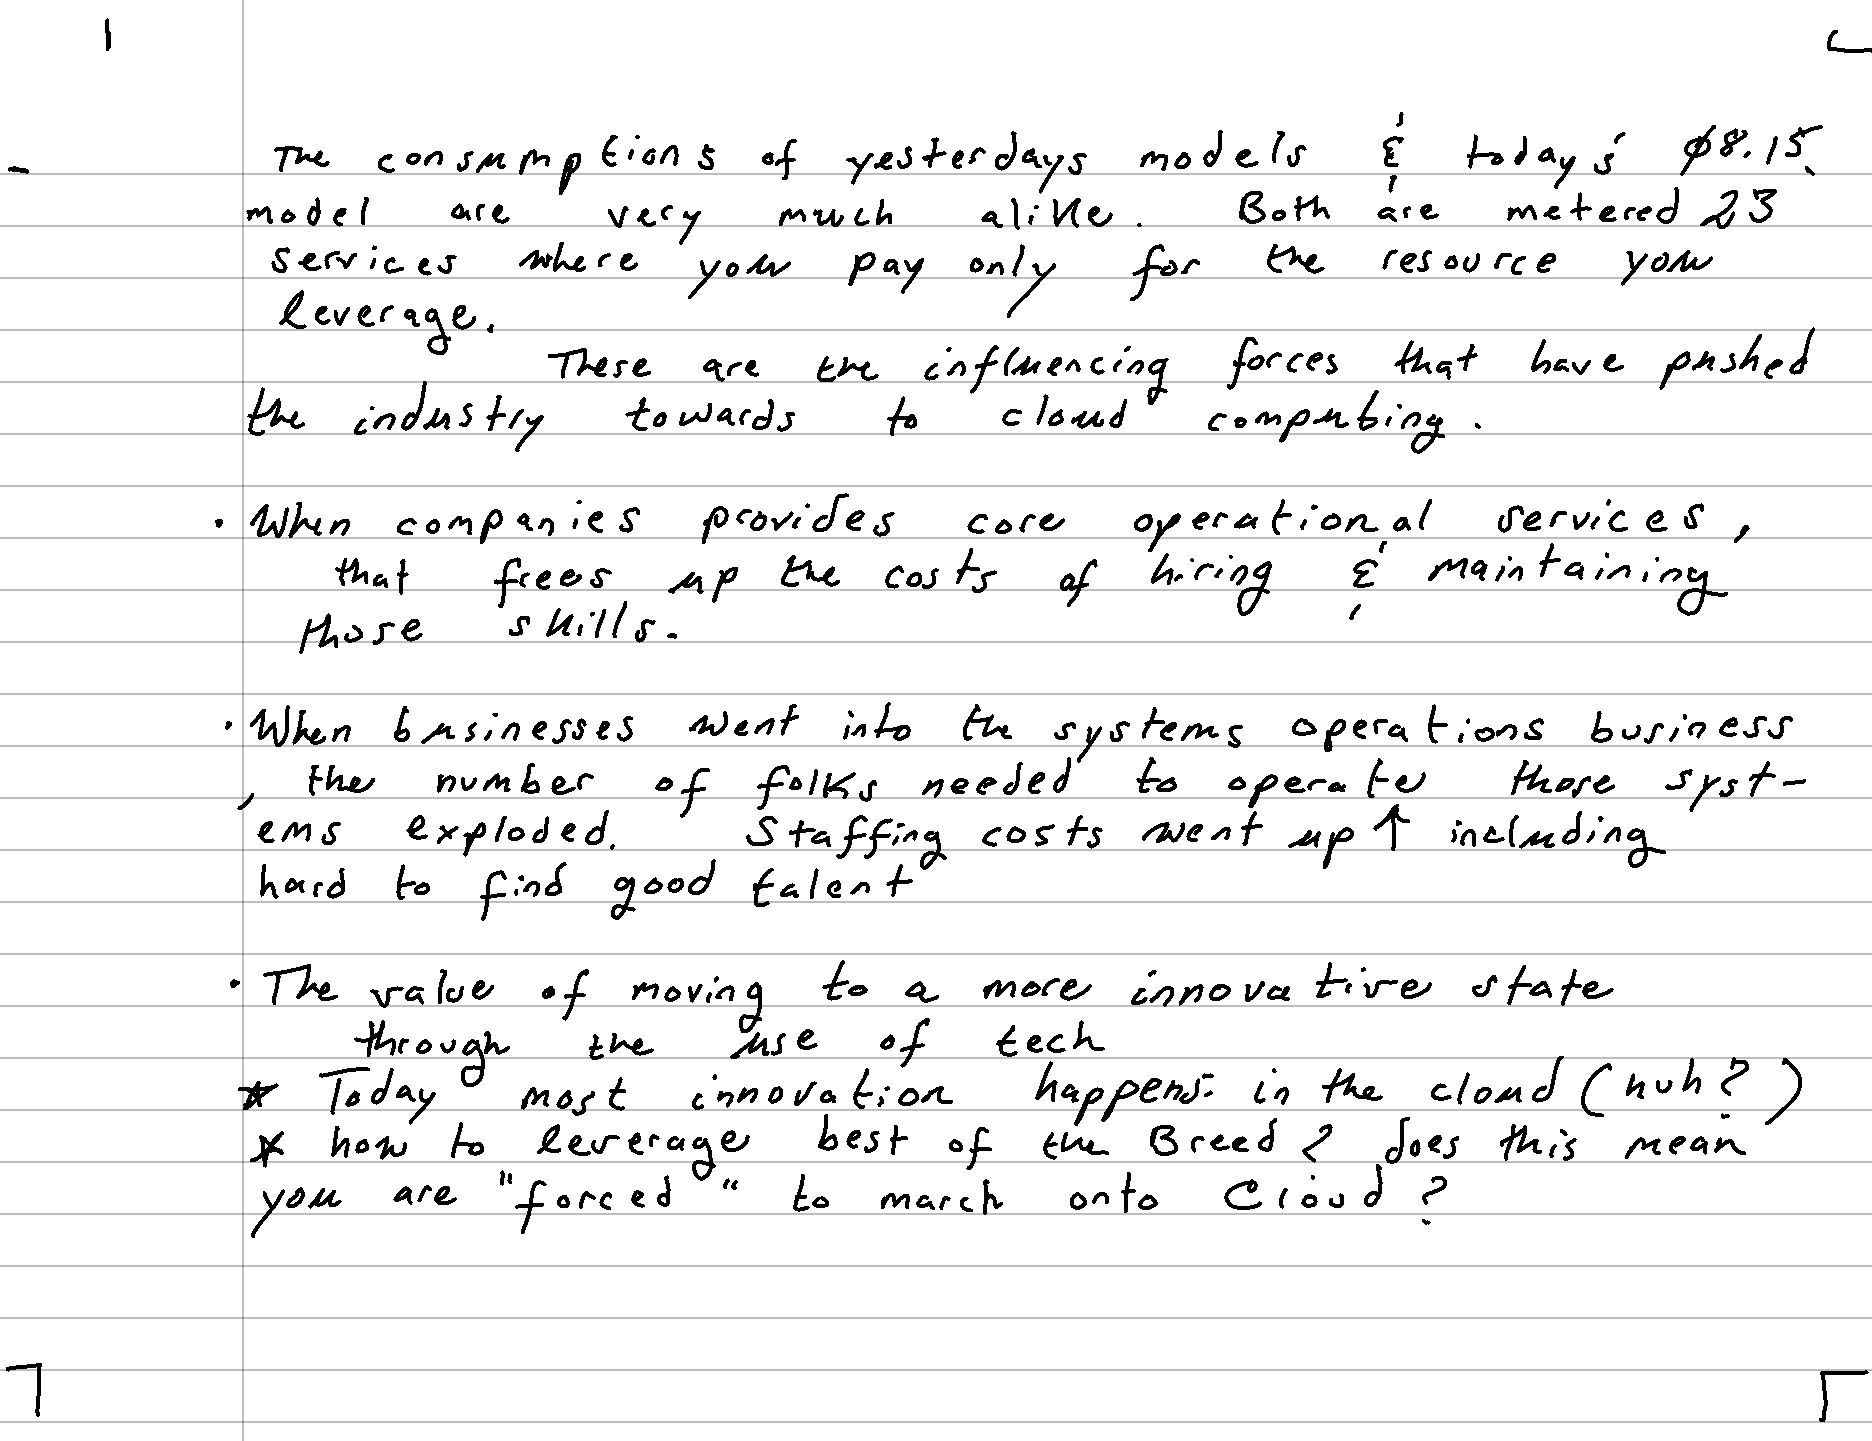 The consumptions of yesterdays models & today's ø8.15.
model are very much alike. Both are metered 23
services where you pay only for the resource you
leverage.
These are the influencing forces that have pushed
the industry towards to cloud computing.
· When companies provides core operational services,
that frees up the costs of hiring & maintaining
those skills.
· When businesses went into the systems operations business
, the number of folks needed to operate those syst-
ems exploded. Staffing costs went up ↑ including
hard to find good talent
· The value of moving to a more innovative state
through the use of tech
* Today most innovation happens in the cloud (huh?)
* how to leverage best of the Breed? does this mean
you are "forced" to march onto Cloud?